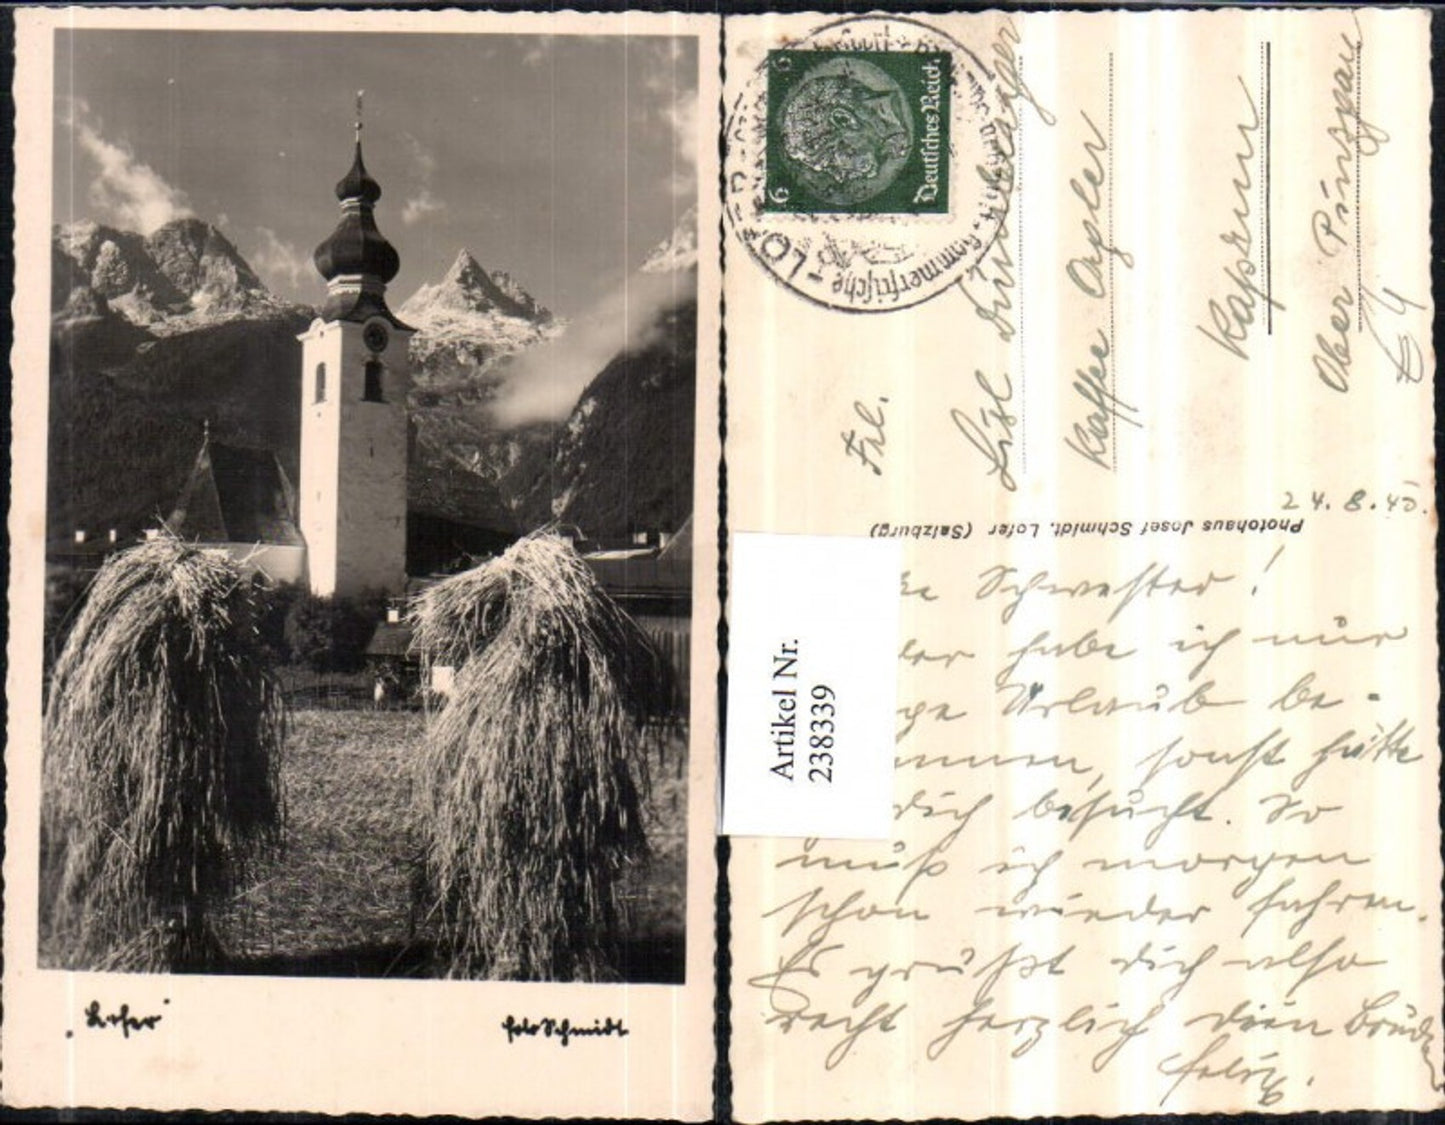 „Lofer“
Foto Schmidt
6 6
Deutsches Reich
LOFER
Sommerfrische
Frl.
Lisl
Kaffee
Kaprun
Ober Pinzgau
24.8.40.
Photohaus Josef Schmidt, Lofer (Salzburg)
Artikel Nr.
238339
Schwester!
habe ich nur
Urlaub be-
sonst hätte
dich besucht. So
muß ich morgen
schon wieder fahren.
Es grüßt dich also
recht herzlich dein Bruder